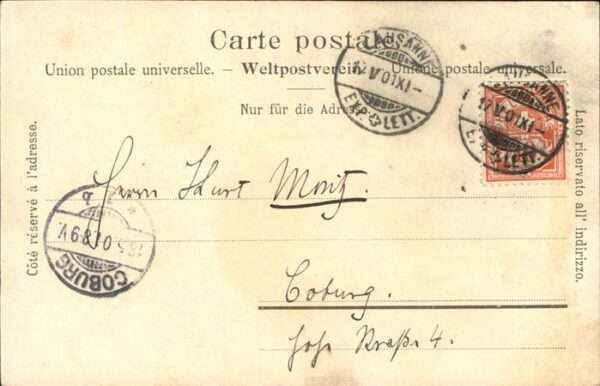 Carte postale.
Union postale universelle. – Weltpostverein. – Unione postale universale.
Nur für die Adresse.
Côté réservé à l'adresse.
Lato riservato all' indirizzo.
LAUSANNE
17. V. 01 XI –
EXP. LETT.
LAUSANNE
17. V. 01 XI –
EXP. LETT.
Herrn Kurt Moritz.
COBURG
Coburg.
Hohe Straße 4.